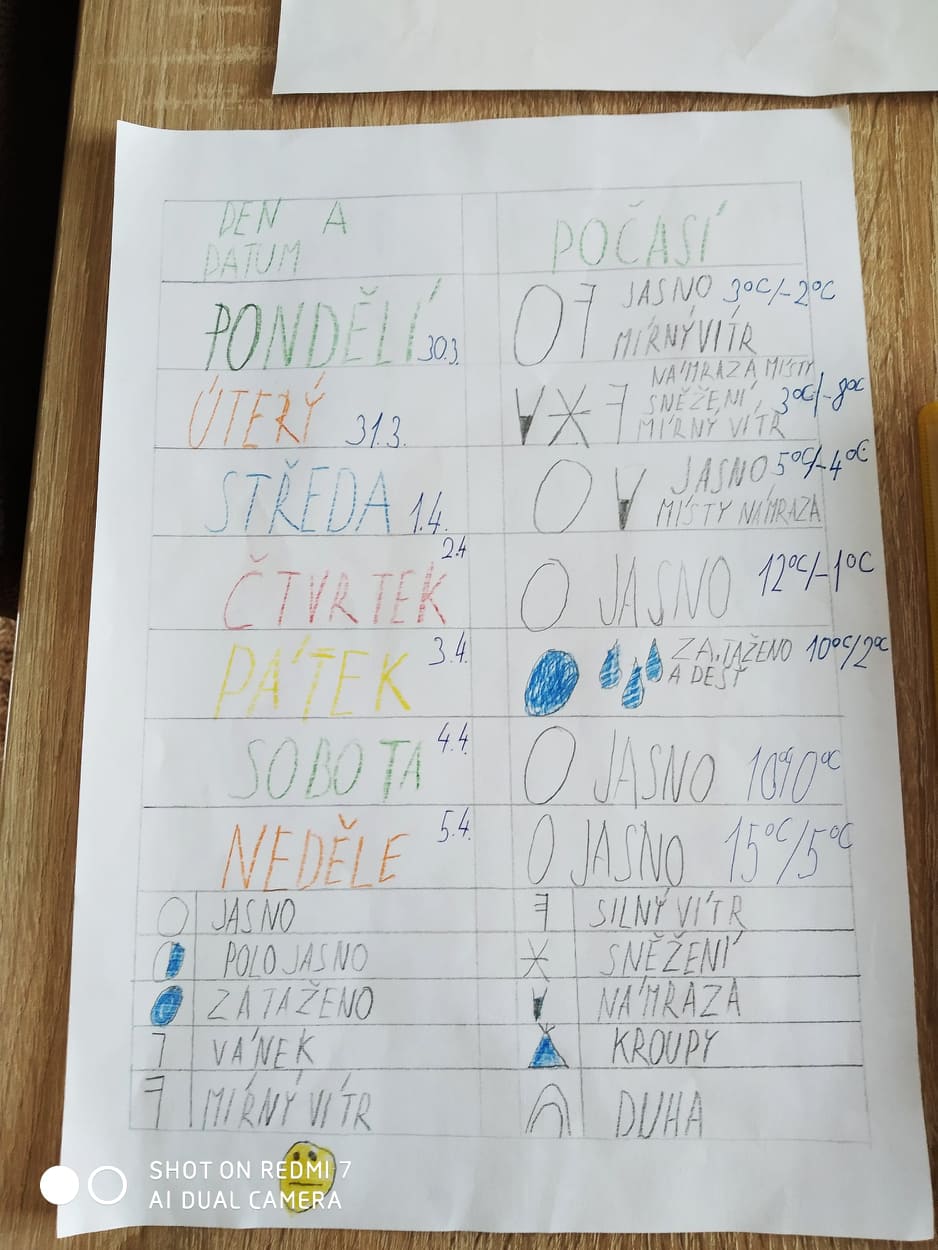 DEN A
DATUM
POČASÍ
PONDĚLÍ 30.3.
JASNO 3°C/-2°C
MÍRNÝ VÍTR
ÚTERÝ 31.3.
NÁMRAZA, MÍSTY
SNĚŽENÍ, 3°C/-8°C
MÍRNÝ VÍTR
STŘEDA 1.4.
JASNO 5°C/-4°C
MÍSTY NÁMRAZA
ČTVRTEK 2.4
JASNO 12°C/-1°C
PÁTEK 3.4.
ZATAŽENO 10°C/2°C
A DEŠŤ
SOBOTA 4.4.
JASNO
NEDĚLE 5.4.
JASNO 15°C/5°C
JASNO
SILNÝ VÍTR
POLOJASNO
SNĚŽENÍ
ZATAŽENO
NÁMRAZA
VÁNEK
KROUPY
MÍRNÝ VÍTR
DUHA
SHOT ON REDMI 7
AI DUAL CAMERA